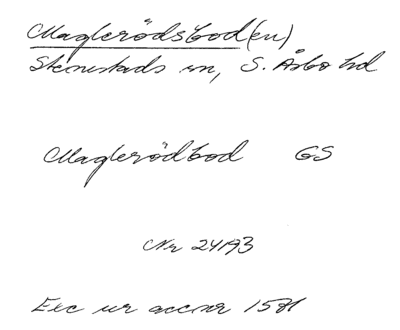 Maglerödsbod(en)
Stenestads sn, S. Åsbo hd
Maglerödbod GS
Nr 24193
Exc ur accnr 1581